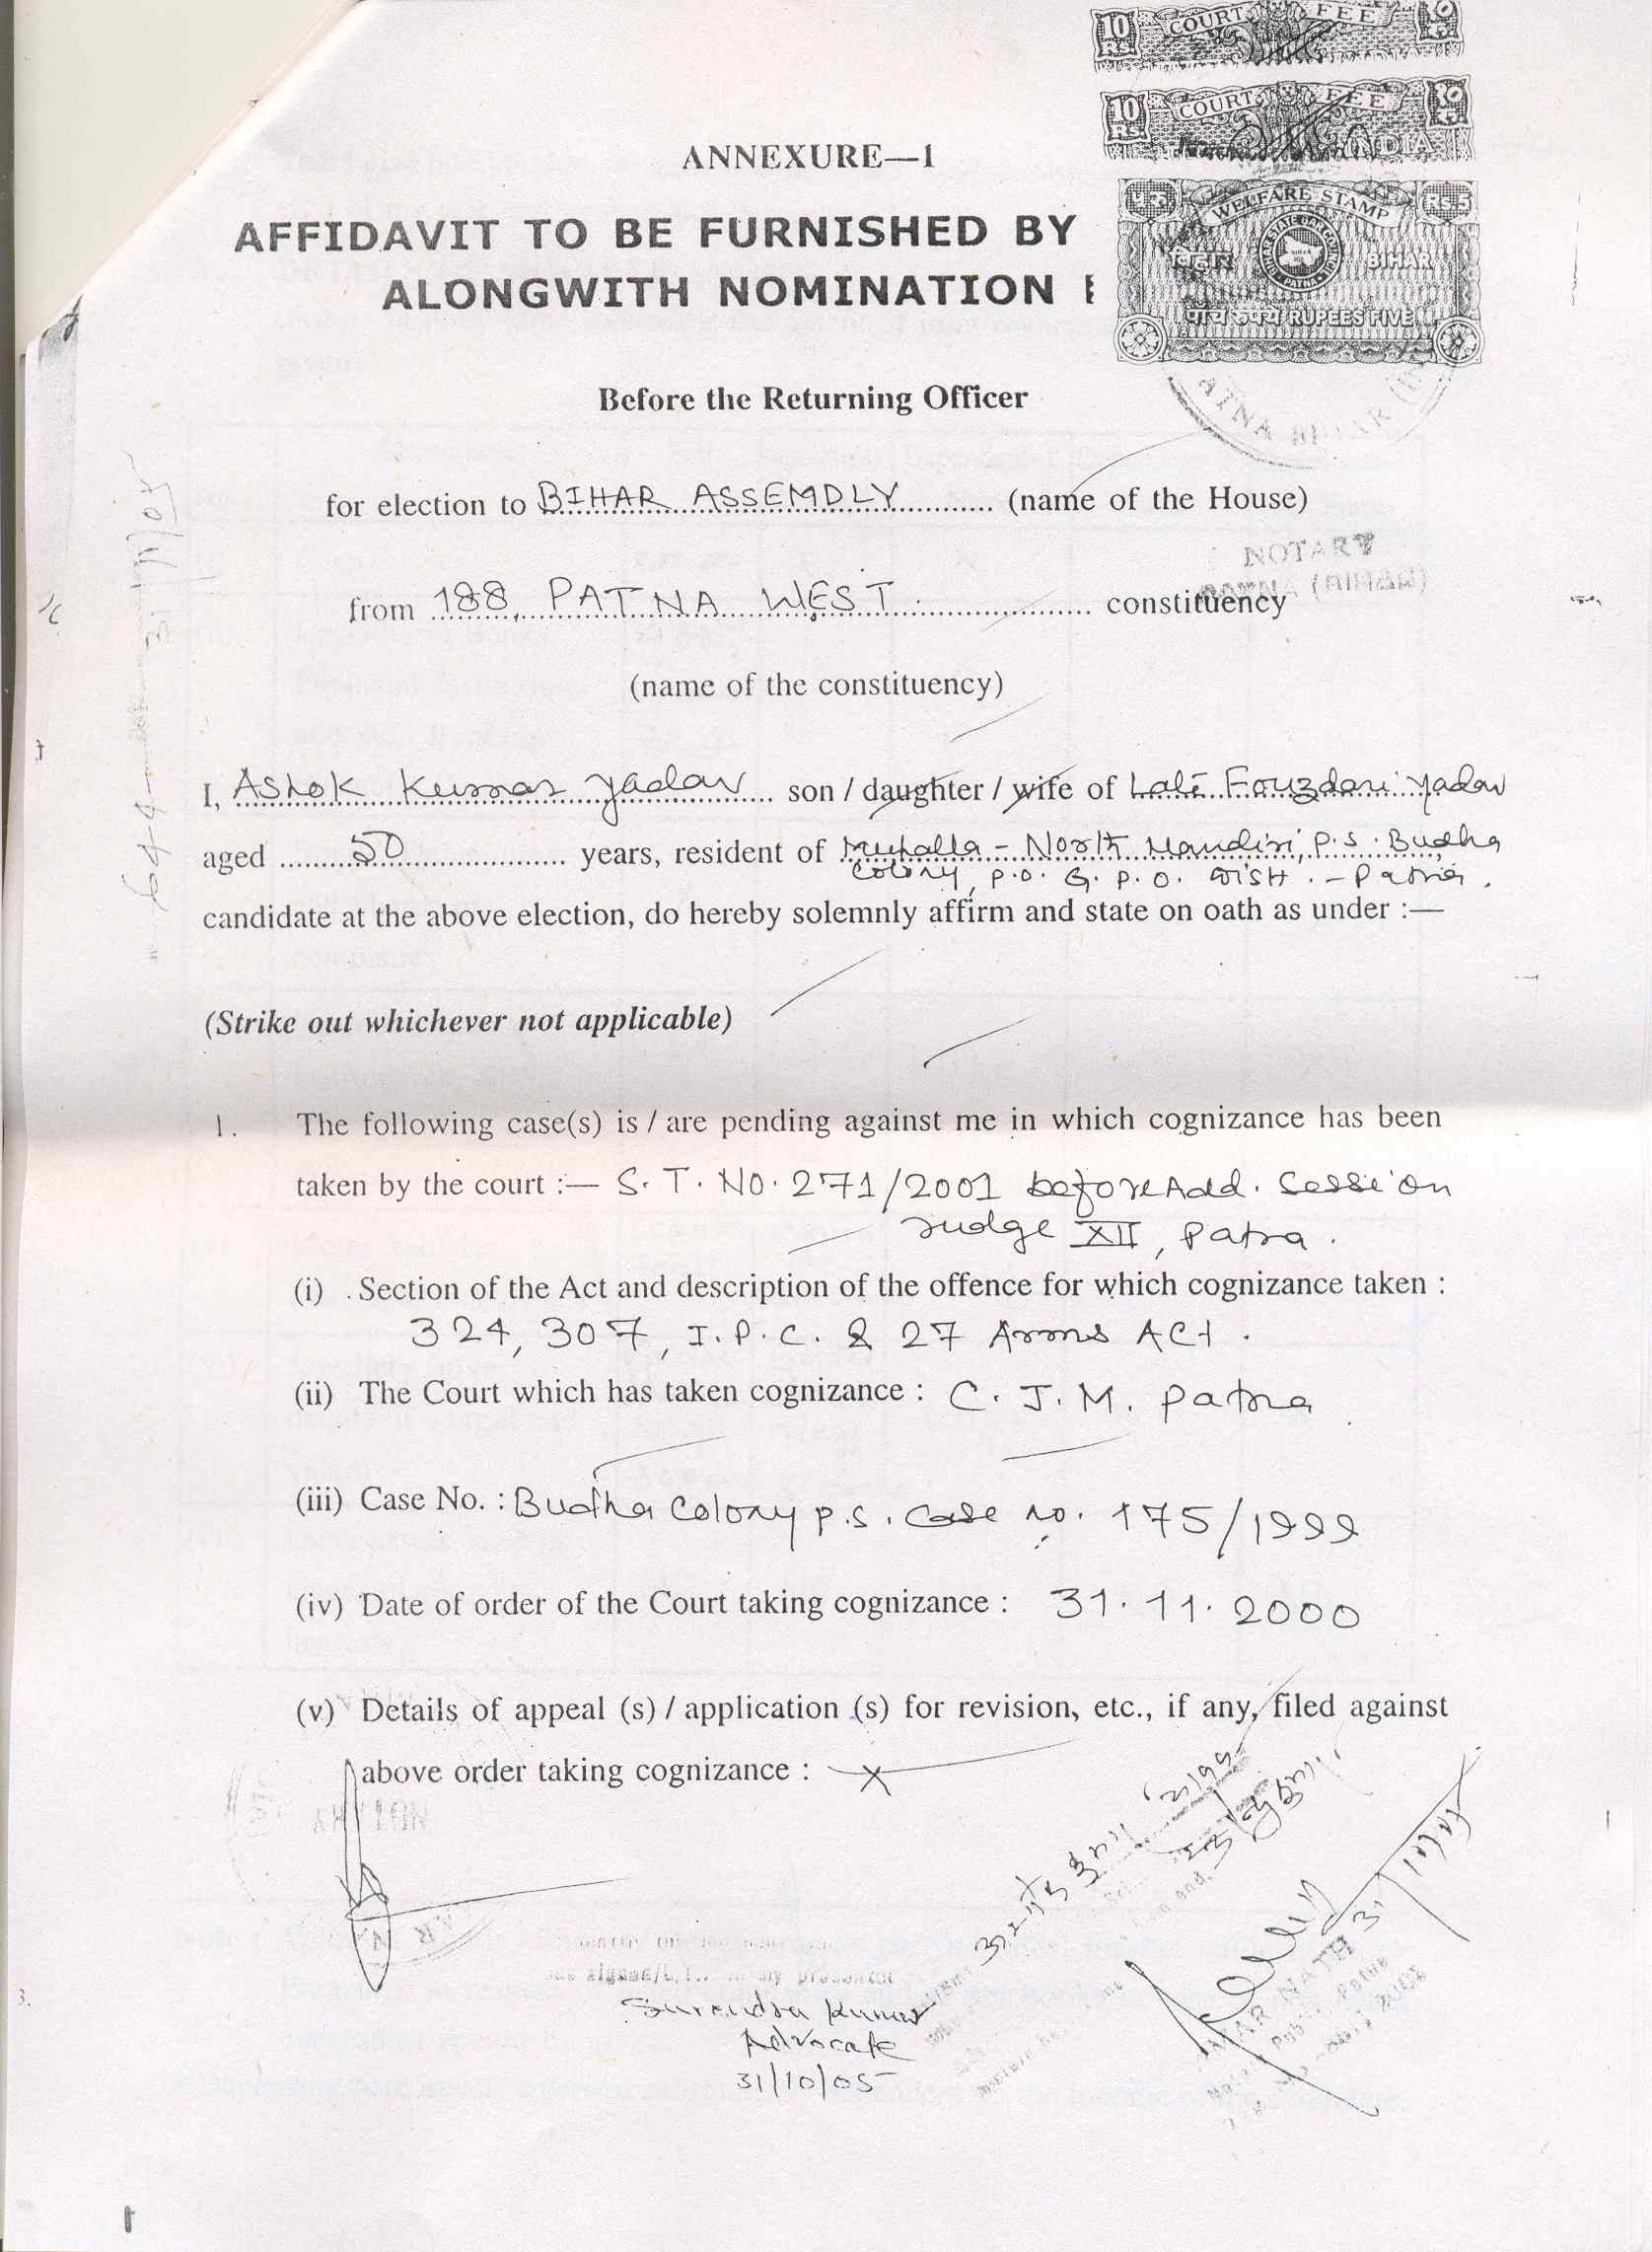 10 RS COURT FEE
10 RS COURT FEE १०
INDIA
WELFARE STAMP RS.5
बिहार BIHAR
पाँच रुपये RUPEES FIVE
ANNEXURE—1
AFFIDAVIT TO BE FURNISHED BY
ALONGWITH NOMINATION
Before the Returning Officer
for election to BIHAR ASSEMDLY (name of the House)
NOTARY
PATNA (BIHAR)
from 188, PATNA WEST. constituency
(name of the constituency)
I, Ashok Kumar Yadav son / daughter / wife of Late Fouzdari Yadav
aged 50 years, resident of Muhalla - North Mandiri, P.S. Budha
Colony, P.O. G.P.O. Dist. - Patna.
candidate at the above election, do hereby solemnly affirm and state on oath as under :—
(Strike out whichever not applicable)
1. The following case(s) is / are pending against me in which cognizance has been
taken by the court :— S.T. No. 271/2001 before Add. Session
Judge XII, Patna.
(i) Section of the Act and description of the offence for which cognizance taken :
324, 307, I.P.C. & 27 Arms Act.
(ii) The Court which has taken cognizance : C.J.M. Patna
(iii) Case No. : Budha Colony P.S. Case No. 175/1999
(iv) Date of order of the Court taking cognizance : 31.11.2000
(v) Details of appeal (s) / application (s) for revision, etc., if any, filed against
above order taking cognizance : X
signed/L.T. in my presence
Surendra Kumar
Advocate
31/10/05